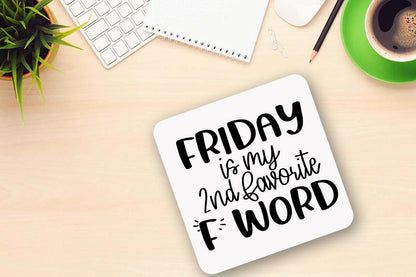 FRIDAY
is my
2nd favorite
"F" WORD